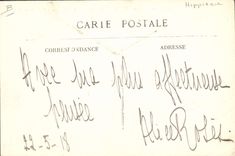 B
Hippisien
CARTE POSTALE
CORRESPONDANCE
ADRESSE
Avec ma plus affectueuse
pensée
Alice
22-5-18